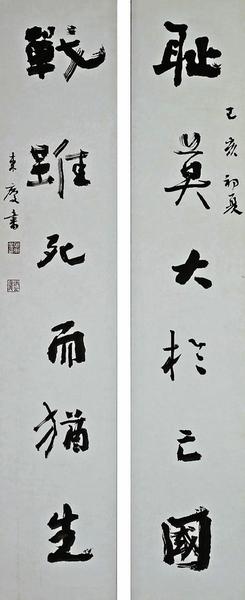 耻莫大於亡國
己亥初夏
戰雖死而猶生
東慶書